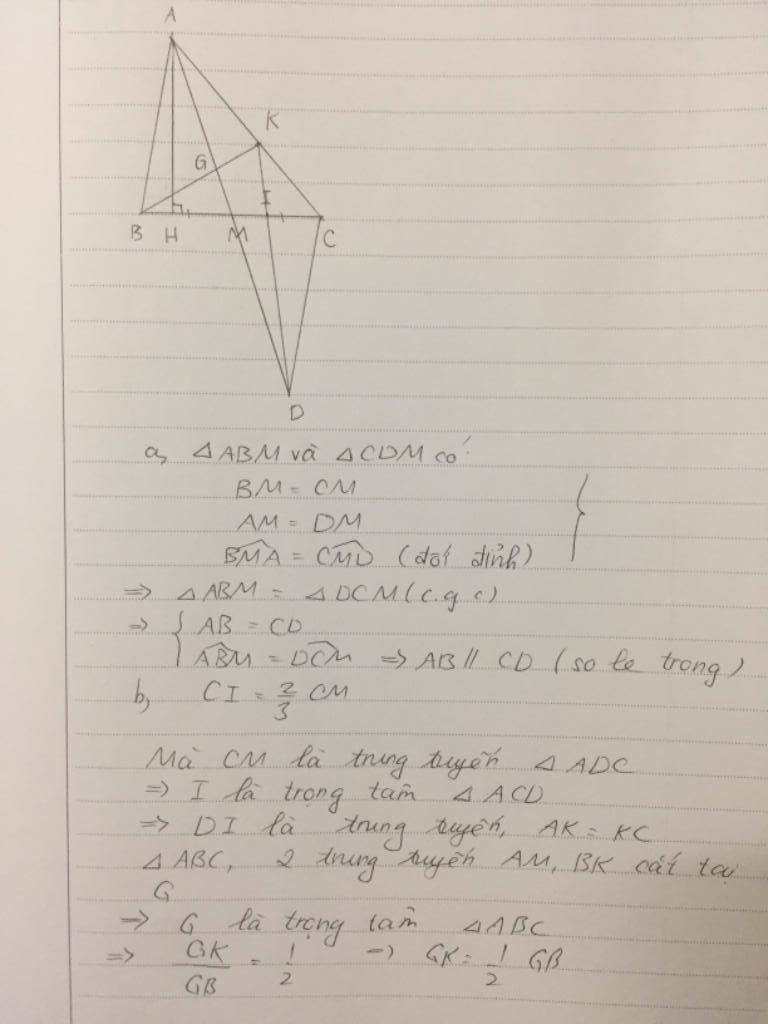 A
K
G
I
B H M C
D
a, △ABM và △CDM có
BM = CM
AM = DM
$\widehat{BMA}$ = $\widehat{CMD}$ (đối đỉnh)
=> △ABM = △DCM (c.g c)
=> { AB = CD
$\widehat{ABM}$ = $\widehat{DCM}$ => AB // CD (so le trong)
b, CI = $\frac{2}{3}$ CM
Mà CM là trung tuyến △ADC
=> I là trọng tâm △ACD
=> DI là trung tuyến, AK = KC
△ABC, 2 trung tuyến AM, BK cắt tại
G
=> G là trọng tâm △ABC
=> $\frac{GK}{GB}$ = $\frac{1}{2}$ => GK = $\frac{1}{2}$ GB